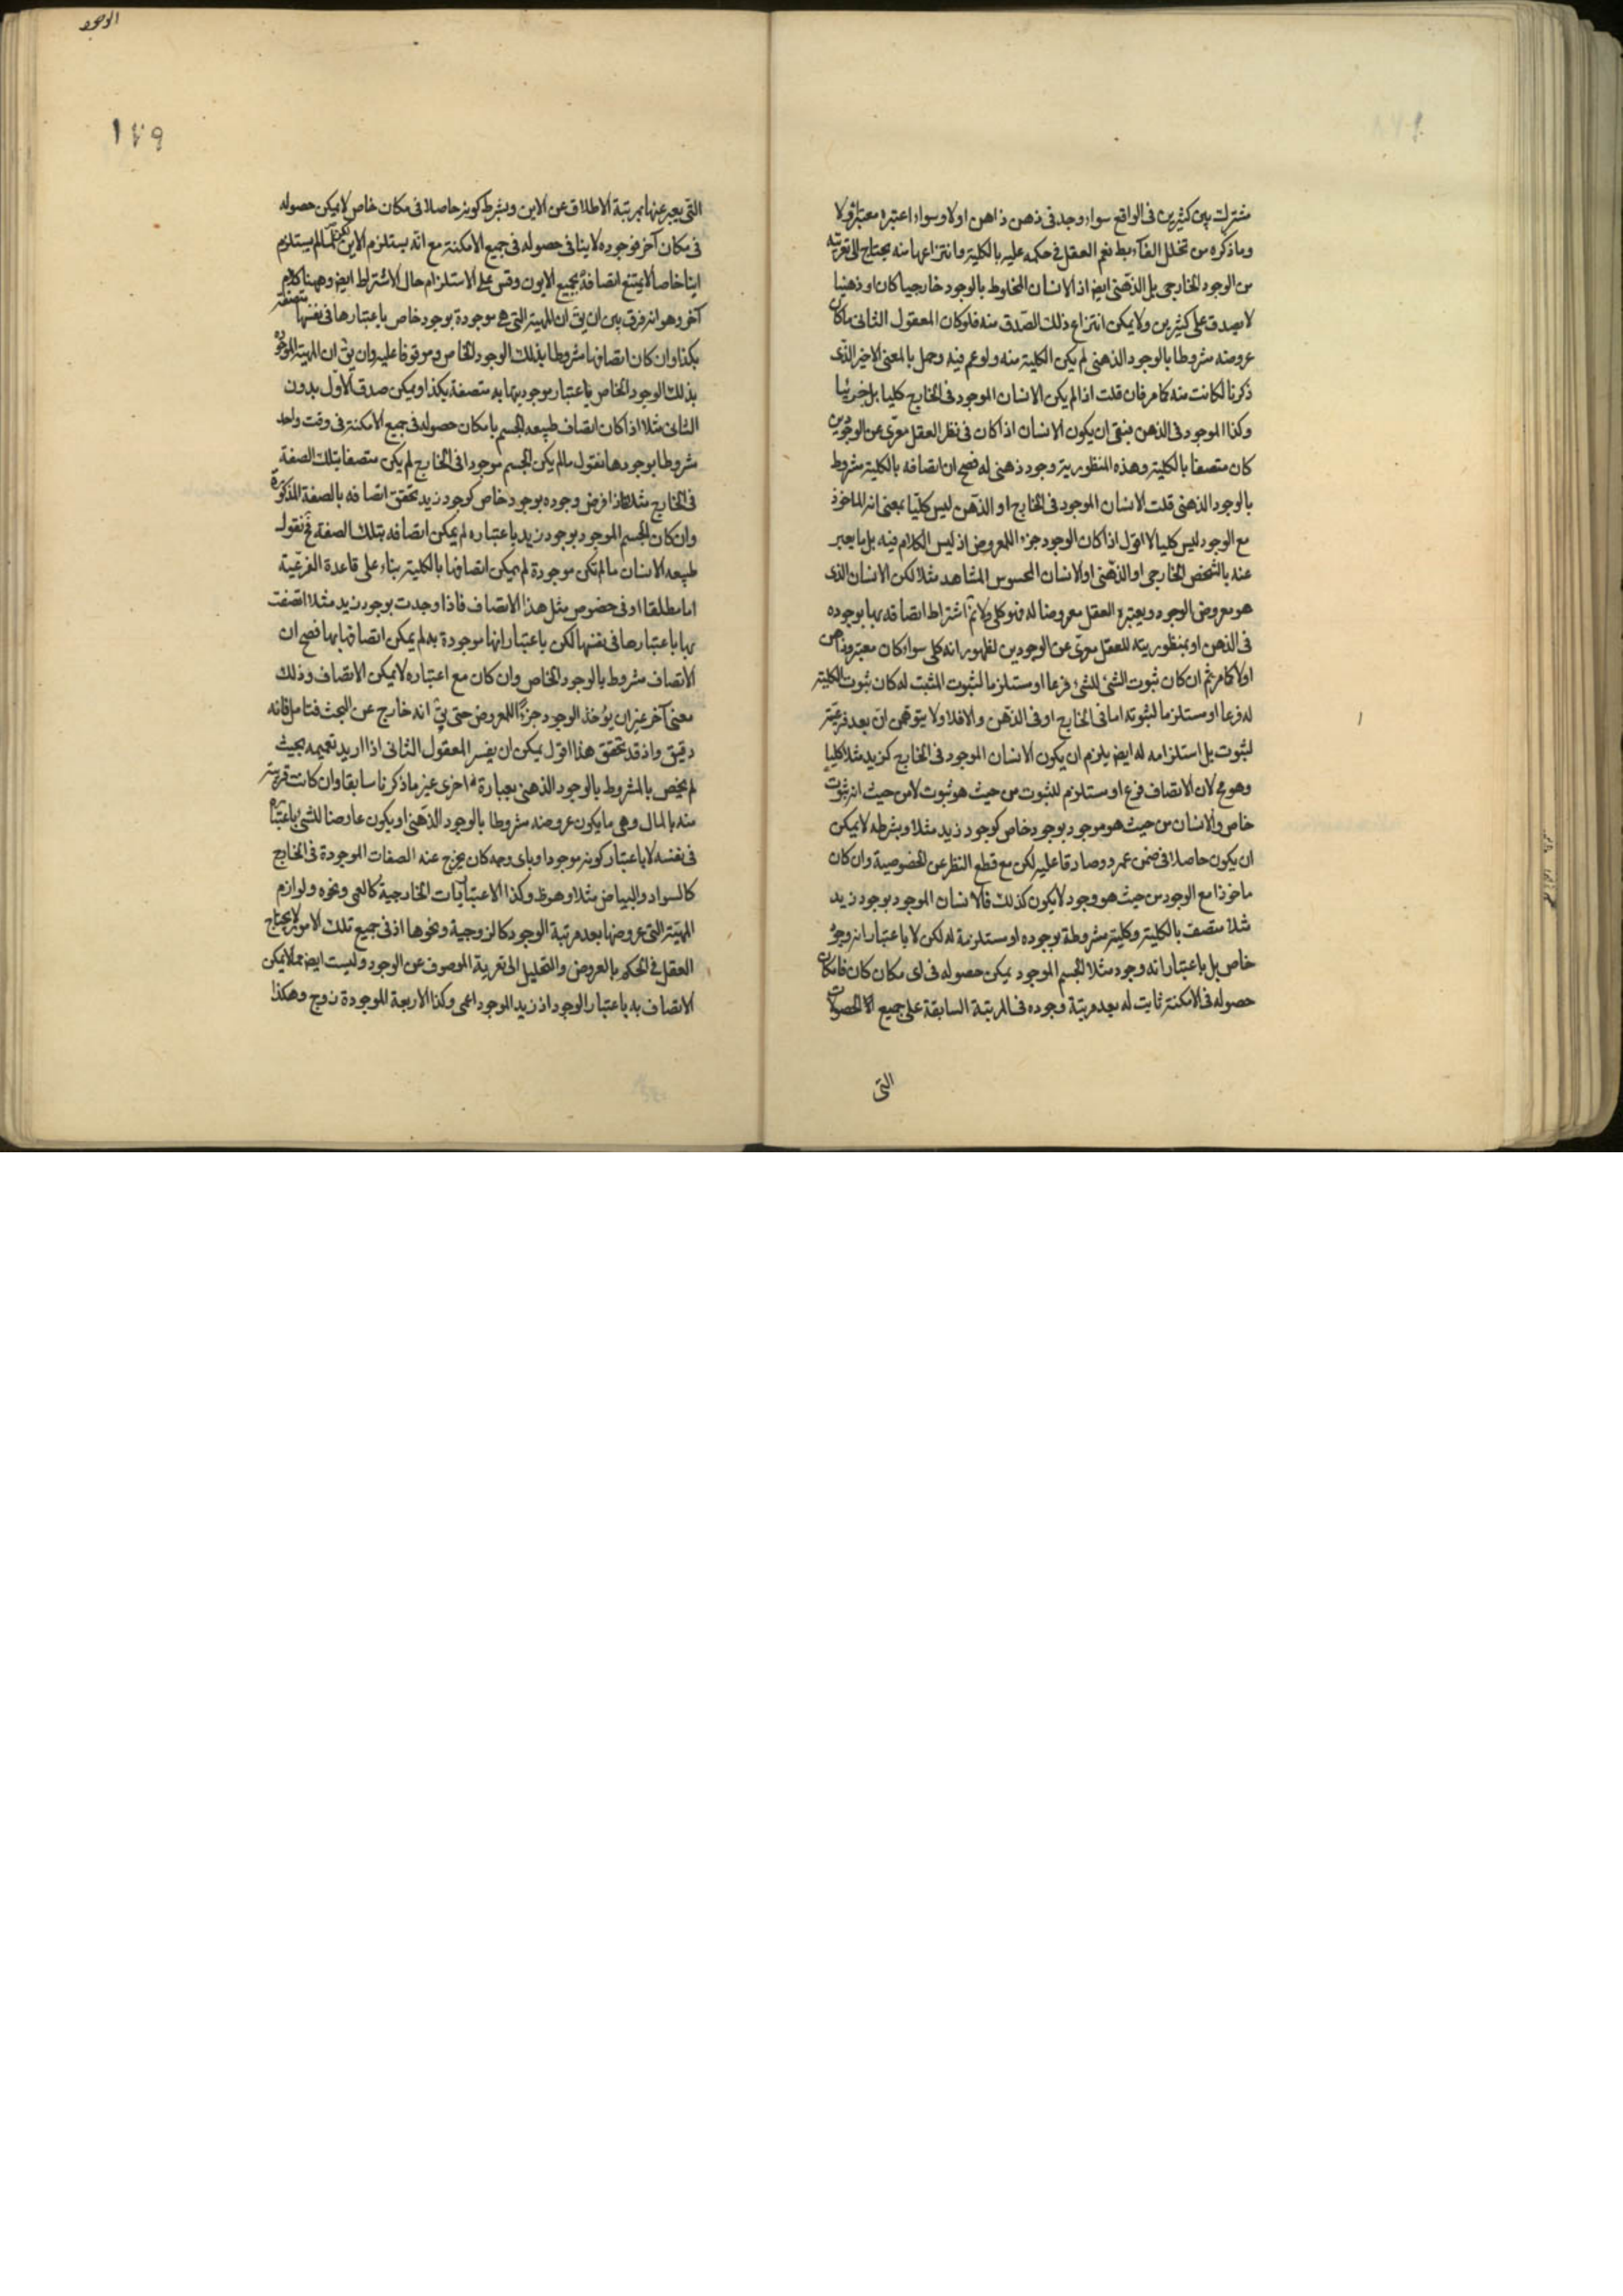 مشترك بين كثيرين فى الواقع سواء وجد فى ذهن ذاهن اولا وسواء اعتبره معتبر او لا
وما ذكره من تخلل الفاء بط نعم العقل فى حكمه عليه بالكلية وانتزاعها منه يحتاج الى تعريته
من الوجود الخارجى بل الذهنى ايض اذ الانسان المخلوط بالوجود خارجيا كان او ذهنيا
لا يصدق على كثيرين ولا يمكن انتزاع ذلك الصدق منه فلو كان المعقول الثانى ما كان
عروضه مشروطا بالوجود الذهنى لم يكن الكلية منه ولو عم فيه وحمل بالمعنى الاخير الذى
ذكرنا لكانت منه كما مر فان قلت اذا لم يكن الانسان الموجود فى الخارج كليا بل جزئيا
وكذا الموجود فى الذهن فبقى ان يكون الانسان اذا كان فى نظر العقل معرّى عن الوجودين
كان متصفا بالكلية وهذه المنظورية وجود ذهنى له فصح ان اتصافه بالكلية مشروط
بالوجود الذهنى قلت الانسان الموجود فى الخارج او الذهن ليس كليّا بمعنى انه الماخوذ
مع الوجود ليس كليا لا اقول اذا كان الوجود جزء المعروض اذ ليس الكلام فيه بل ما يعبر
عنه بالشخص الخارجى او الذهنى او الانسان المحسوس المشاهد مثلا لكن الانسان الذى
هو معروض الوجود ويعتبره العقل معروضا له فهو كلى ولا ثم اشتراط اتصافه بها بوجوده
فى الذهن او بمنظوريته للعقل معرّى عن الوجودين لظهور انه كلى سواء كان معتبر وذاهن
اولا كما مر ثم ان كان ثبوت الشئ للشئ فرعا او مستلزما لثبوت المثبت له كان ثبوت الكلية
له فرعا او مستلزما لثبوته اما فى الخارج او فى الذهن والا فلا ولا يتوهمن ان بعد فرعيته
لثبوت بل استلزامه له ايض يلزم ان يكون الانسان الموجود فى الخارج كزيد مثلا كليا
وهو مح لان الاتصاف فرع او مستلزم للثبوت من حيث هو ثبوت لا من حيث انه ثبوت
خاص والانسان من حيث هو موجود بوجود خاص كوجود زيد مثلا وبشرطه لا يمكن
ان يكون حاصلا فى ضمن عمرو وصادقا عليه لكن مع قطع النظر عن الخصوصية وان كان
ماخوذا مع الوجود من حيث هو وجود لا يكون كذلك فالانسان الموجود بوجود زيد
مثلا متصف بالكلية وكلية مشروطة بوجوده او مستلزمة له لكن لا باعتبار انه وجود
خاص بل باعتبار انه وجود مثلا الجسم الموجود يمكن حصوله فى اى مكان كان فامكان
حصوله فى الامكنة ثابت له بعد مرتبة وجوده فـالمرتبة السابقة على جميع الحصولات
التى
الوجود
١٧٩
التى يعبر عنها بمرتبة الاطلاق عن الاين وبشرط كونه حاصلا فى مكان خاص لا يمكن حصوله
فى مكان آخر فوجوده لا ينافى حصوله فى جميع الامكنة مع انه يستلزم الاين لكن لما لم يستلزم
اينا خاصا لا يمتنع اتصافه بجميع الايون وقس على الاستلزام حال الاشتراط ايض وههنا كلام
آخر وهو انه فرق بين ان يق ان المهية التى هى موجودة بوجود خاص باعتبارها فى نفسها متصفة
بكذا وان كان اتصافها مشروطا بذلك الوجود الخاص وموقوفا عليه وان يق ان المهية الموجودة
بذلك الوجود الخاص باعتبار موجوديتها به متصفة بكذا ويمكن صدق الاول بدون
الثانى مثلا اذا كان اتصاف طبيعه الجسم بامكان حصوله فى جميع الامكنة فى وقت واحد
مشروطا بوجودها نقول ما لم يكن الجسم موجودا فى الخارج لم يكن متصفا بتلك الصفة
فى الخارج مثلا فاذا فرض وجوده بوجود خاص كوجود زيد تحقق اتصافه بالصفة المذكورة
وان كان الجسم الموجود بوجود زيد باعتباره لم يمكن اتصافه بتلك الصفة فح نقول
طبيعه الانسان ما لم تكن موجودة لم يمكن اتصافها بالكلية بناء على قاعدة الفرعية
اما مطلقا او فى خصوص مثل هذا الاتصاف فاذا وجدت بوجود زيد مثلا اتصفت
بها باعتبارها فى نفسها لكن باعتبار انها موجودة به لم يمكن اتصافها بها فصح ان
الاتصاف مشروط بالوجود الخاص وان كان مع اعتباره لا يمكن الاتصاف وذلك
معنى آخر غير ان يؤخذ الوجود جزءًا للمعروض حتى يق انه خارج عن البحث فتامل فانه
دقيق واذ قد تحقق هذا اقول يمكن ان يفسر المعقول الثانى اذا اريد تعميمه بحيث
لم يخص بالمشروط بالوجود الذهنى بعبارة اخرى غير ما ذكرنا سابقا وان كانت قريبة
منه بالمال وهى ما يكون عروضه مشروطا بالوجود الذهنى او يكون عارضا للشئ باعتباره
فى نفسه لا باعتبار كونه موجودا وباى وجه كان يخرج عنه الصفات الموجودة فى الخارج
كالسواد والبياض مثلا وهو ظ وكذا الاعتباريات الخارجية كالعمى ونحوه ولوازم
المهيّة التى عروضها بعد مرتبة الوجود كالزوجية ونحوها اذ فى جميع تلك الامور لا يحتاج
العقل فى الحكم بالعروض والتحليل الى تعرية الموصوف عن الوجود وليست ايض مما لا يمكن
الاتصاف به باعتبار الوجود اذ زيد الموجود اعمى وكذا الاربعة الموجودة زوج وهكذا